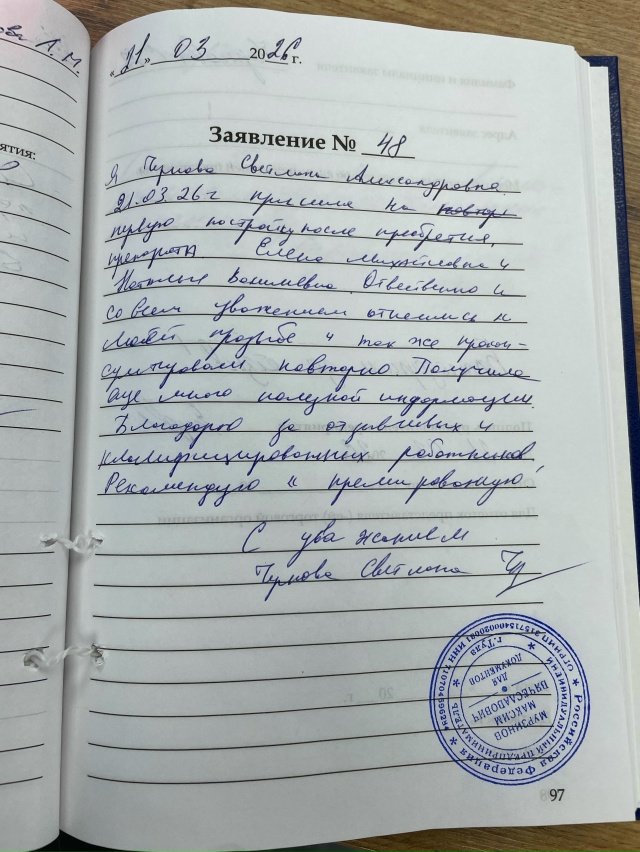 А. М.
ятия:
«21» 03 2026 г.
Заявление № 48
Я Чернова Светлана Александровна
21.03.26 г пришла на повтор
первую постройку после преобретия,
препората. Елена Михайловна и
Наталья Васильевна. Ответствено и
со всем уважением отнеслись к
моей прозьбе и так же прокон-
сультировали повторно Получила
еще много полезной информации.
Благодарю за отзывчивых и
клалифицированных работников
Рекомендую к премированию!
С уважением
Чернова Светлана
Российская Федерация
ИНДИВИДУАЛЬНЫЙ ПРЕДПРИНИМАТЕЛЬ
г. Тула
МУРЗИНОВ
МАКСИМ
ВЯЧЕСЛАВОВИЧ
ДЛЯ
ДОКУМЕНТОВ
97